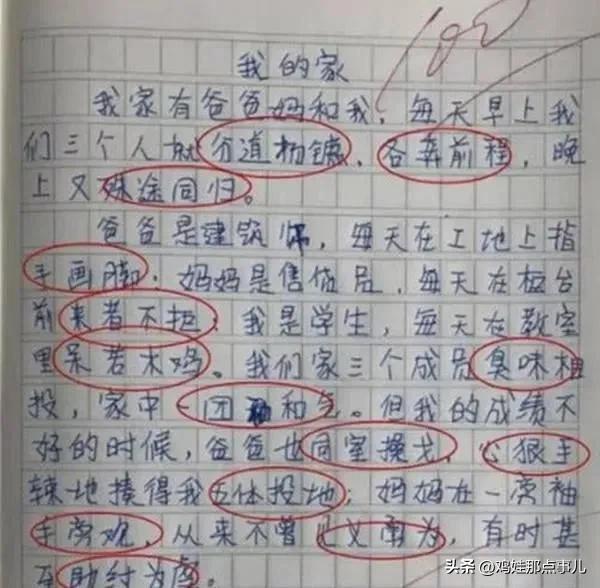 100
我的家
我家有爸爸妈和我，每天早上我
们三个人就分道扬镳、各奔前程，晚
上又殊途同归。
爸爸是建筑师，每天在工地上指
手画脚；妈妈是售货员，每天在柜台
前来者不拒；我是学生，每天在教室
里呆若木鸡。我们家三个成员臭味相
投，家中一团和气。但我的成绩不
好的时候，爸爸也同室操戈，心狠手
辣地揍得我五体投地；妈妈在一旁袖
手旁观，从来不曾见义勇为，有时甚
至助纣为虐。
头条 @鸡娃那点事儿